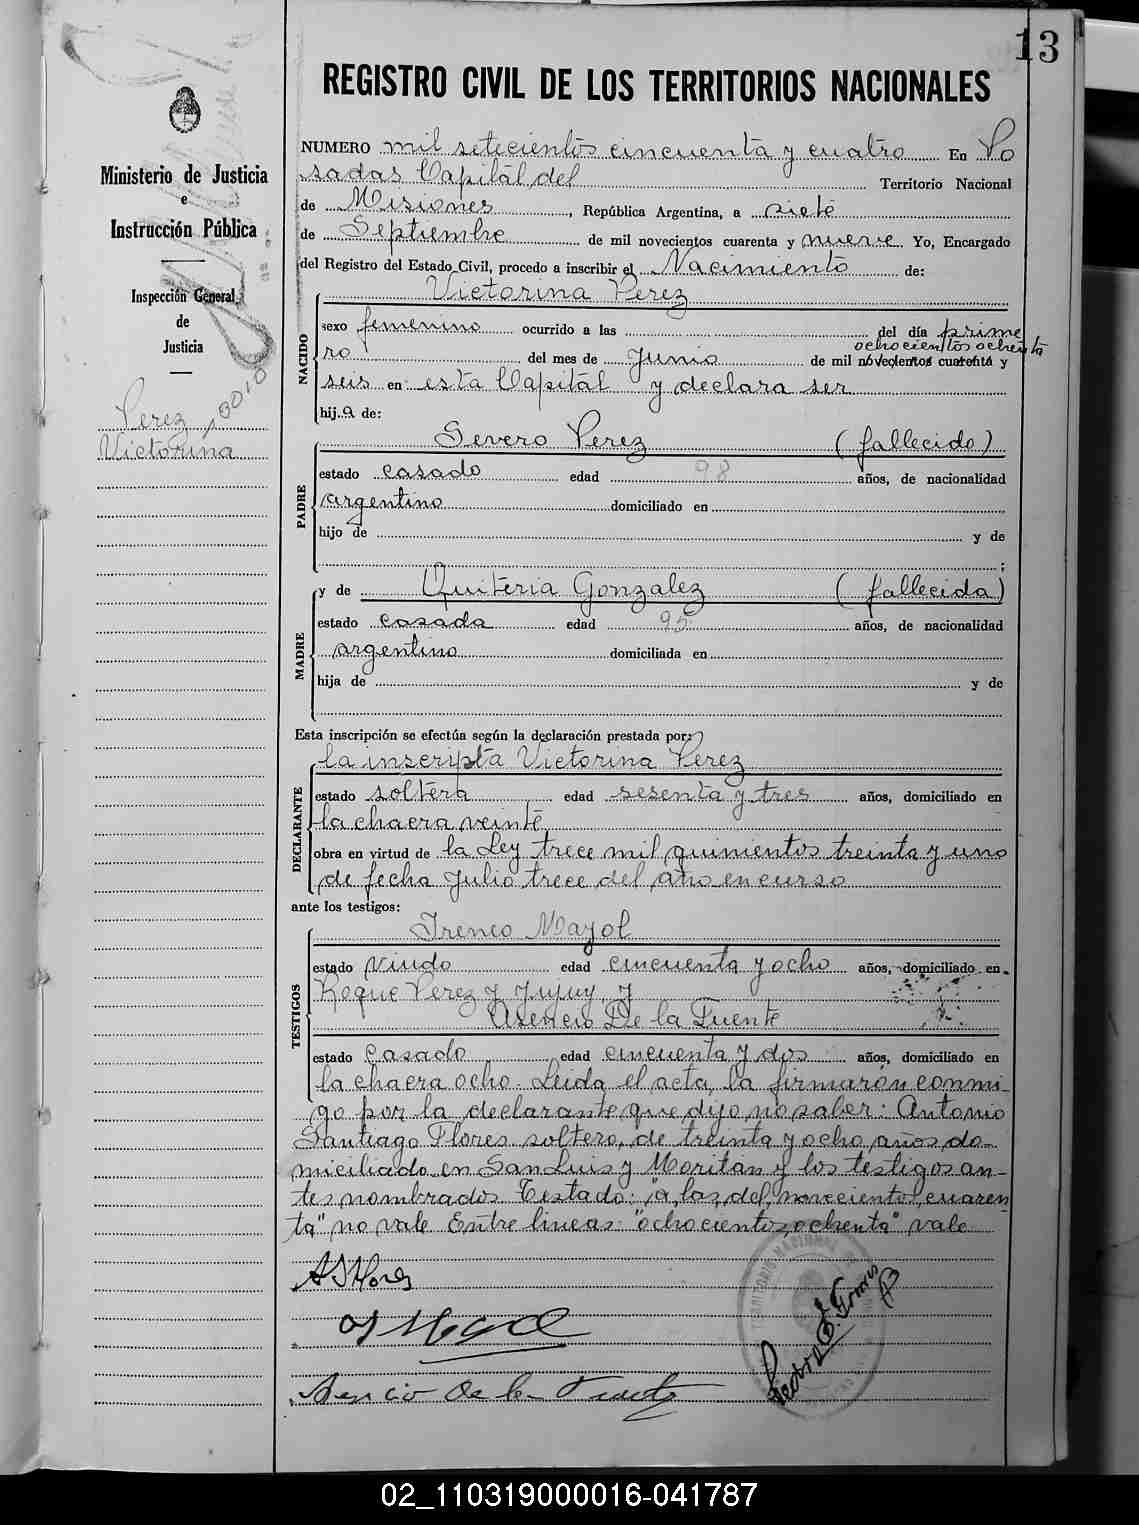 13
REGISTRO CIVIL DE LOS TERRITORIOS NACIONALES
Ministerio de Justicia
e
Instrucción Pública
Inspección General
de
Justicia
Perez,
Victorina
NUMERO mil setecientos cincuenta y cuatro En Po
sadas Capital del Territorio Nacional
de Misiones, República Argentina, a siete
de Septiembre de mil novecientos cuarenta y nueve Yo, Encargado
del Registro del Estado Civil, procedo a inscribir el Nacimiento de:
NACIDO
Victorina Perez
sexo femenino ocurrido a las del día prime
ochocientos ochenta
ro del mes de Junio de mil novecientos cuarenta y
seis en esta Capital y declara ser
hija de:
PADRE
Severo Perez (fallecido)
estado casado edad 98 años, de nacionalidad
argentino domiciliado en
hijo de y de
;
MADRE
y de Quiteria Gonzalez (fallecida)
estado casada edad 95 años, de nacionalidad
argentino domiciliada en
hija de y de
Esta inscripción se efectúa según la declaración prestada por:
DECLARANTE
la inscripta Victorina Perez
estado soltera edad sesenta y tres años, domiciliado en
la chacra veinte
obra en virtud de la Ley trece mil quinientos treinta y uno
de fecha Julio trece del año en curso
ante los testigos:
TESTIGOS
Ireneo Mayol
estado viudo edad cincuenta y ocho años, domiciliado en
Roque Perez y Jujuy, y
Asencio De la Fuente
estado Casado edad cincuenta y dos años, domiciliado en
la chacra ocho. Leida el acta, la firmaron conmi-
go por la declarante que dijo no saber: Antonio
Santiago Flores soltero, de treinta y ocho años do-
miciliado en San Luis y Moritán y los testigos an-
tes nombrados. Testado: "a las, del, novecientos, cuaren
ta" no vale Entre lineas: "ochocientos ochenta" vale
A S Flores
Asencio De la Fuente
TERRITORIO NACIONAL
02_110319000016-041787